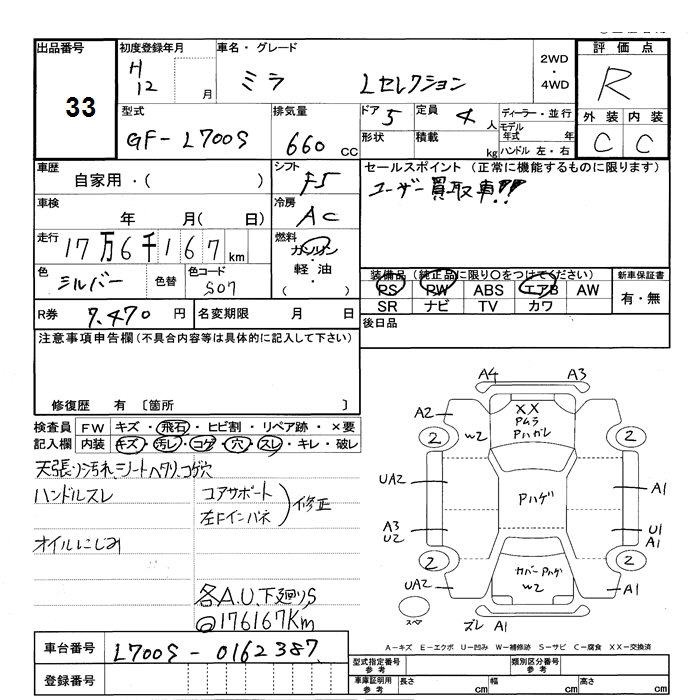 出品番号
33
初度登録年月
H
12
月
車名・グレード
ミラ Lセレクション
2WD
・
4WD
評価点
R
型式
GF-L700S
排気量
660 CC
ドア 5
定員 4 人
形状
積載 kg
ディーラー・並行
モデル年式 年
ハンドル 左・右
外装 内装
C C
車歴
自家用・( )
シフト
F5
セールスポイント (正常に機能するものに限ります)
ユーザー買取車!!
車検
年 月( 日)
冷房
AC
走行
17万6千167km
燃料
ガソリン
軽油
( )
色
シルバー
色替
色コード
S07
装備品(純正品に限り○をつけてください)
PS PW ABS エアB AW
SR ナビ TV カワ
新車保証書
有・無
R券 7,470 円
名変期限 月 日
後日品
注意事項申告欄(不具合内容等は具体的に記入して下さい)
修復歴 有 〔箇所 〕
検査員 FW キズ・飛石・ヒビ割・リペア跡・×要
記入欄 内装 キズ・汚レ・コゲ・穴・スレ・キレ・破レ
天張り汚れ、シートヘタリ、コゲ穴
ハンドルスレ
コアサポート
左Fインパネ
修正
オイルにじみ
各A.U、下廻りS
◎176167Km
A4 A3
A2
W2
XX
Pムラ
Pハガレ
2
2
UA2
Pハゲ
A1
A3
U2
U1
A1
2
2
UA2
カバーPハゲ
W2
A1
スペ
ズレ A1
A-キズ E-エクボ U-凹み W-補修跡 S-サビ C-腐食 XX-交換済
車台番号 L700S-0162387
登録番号
型式指定番号
参考
類別区分番号
参考
車庫証明用
参考
長さ cm 幅 cm 高さ cm